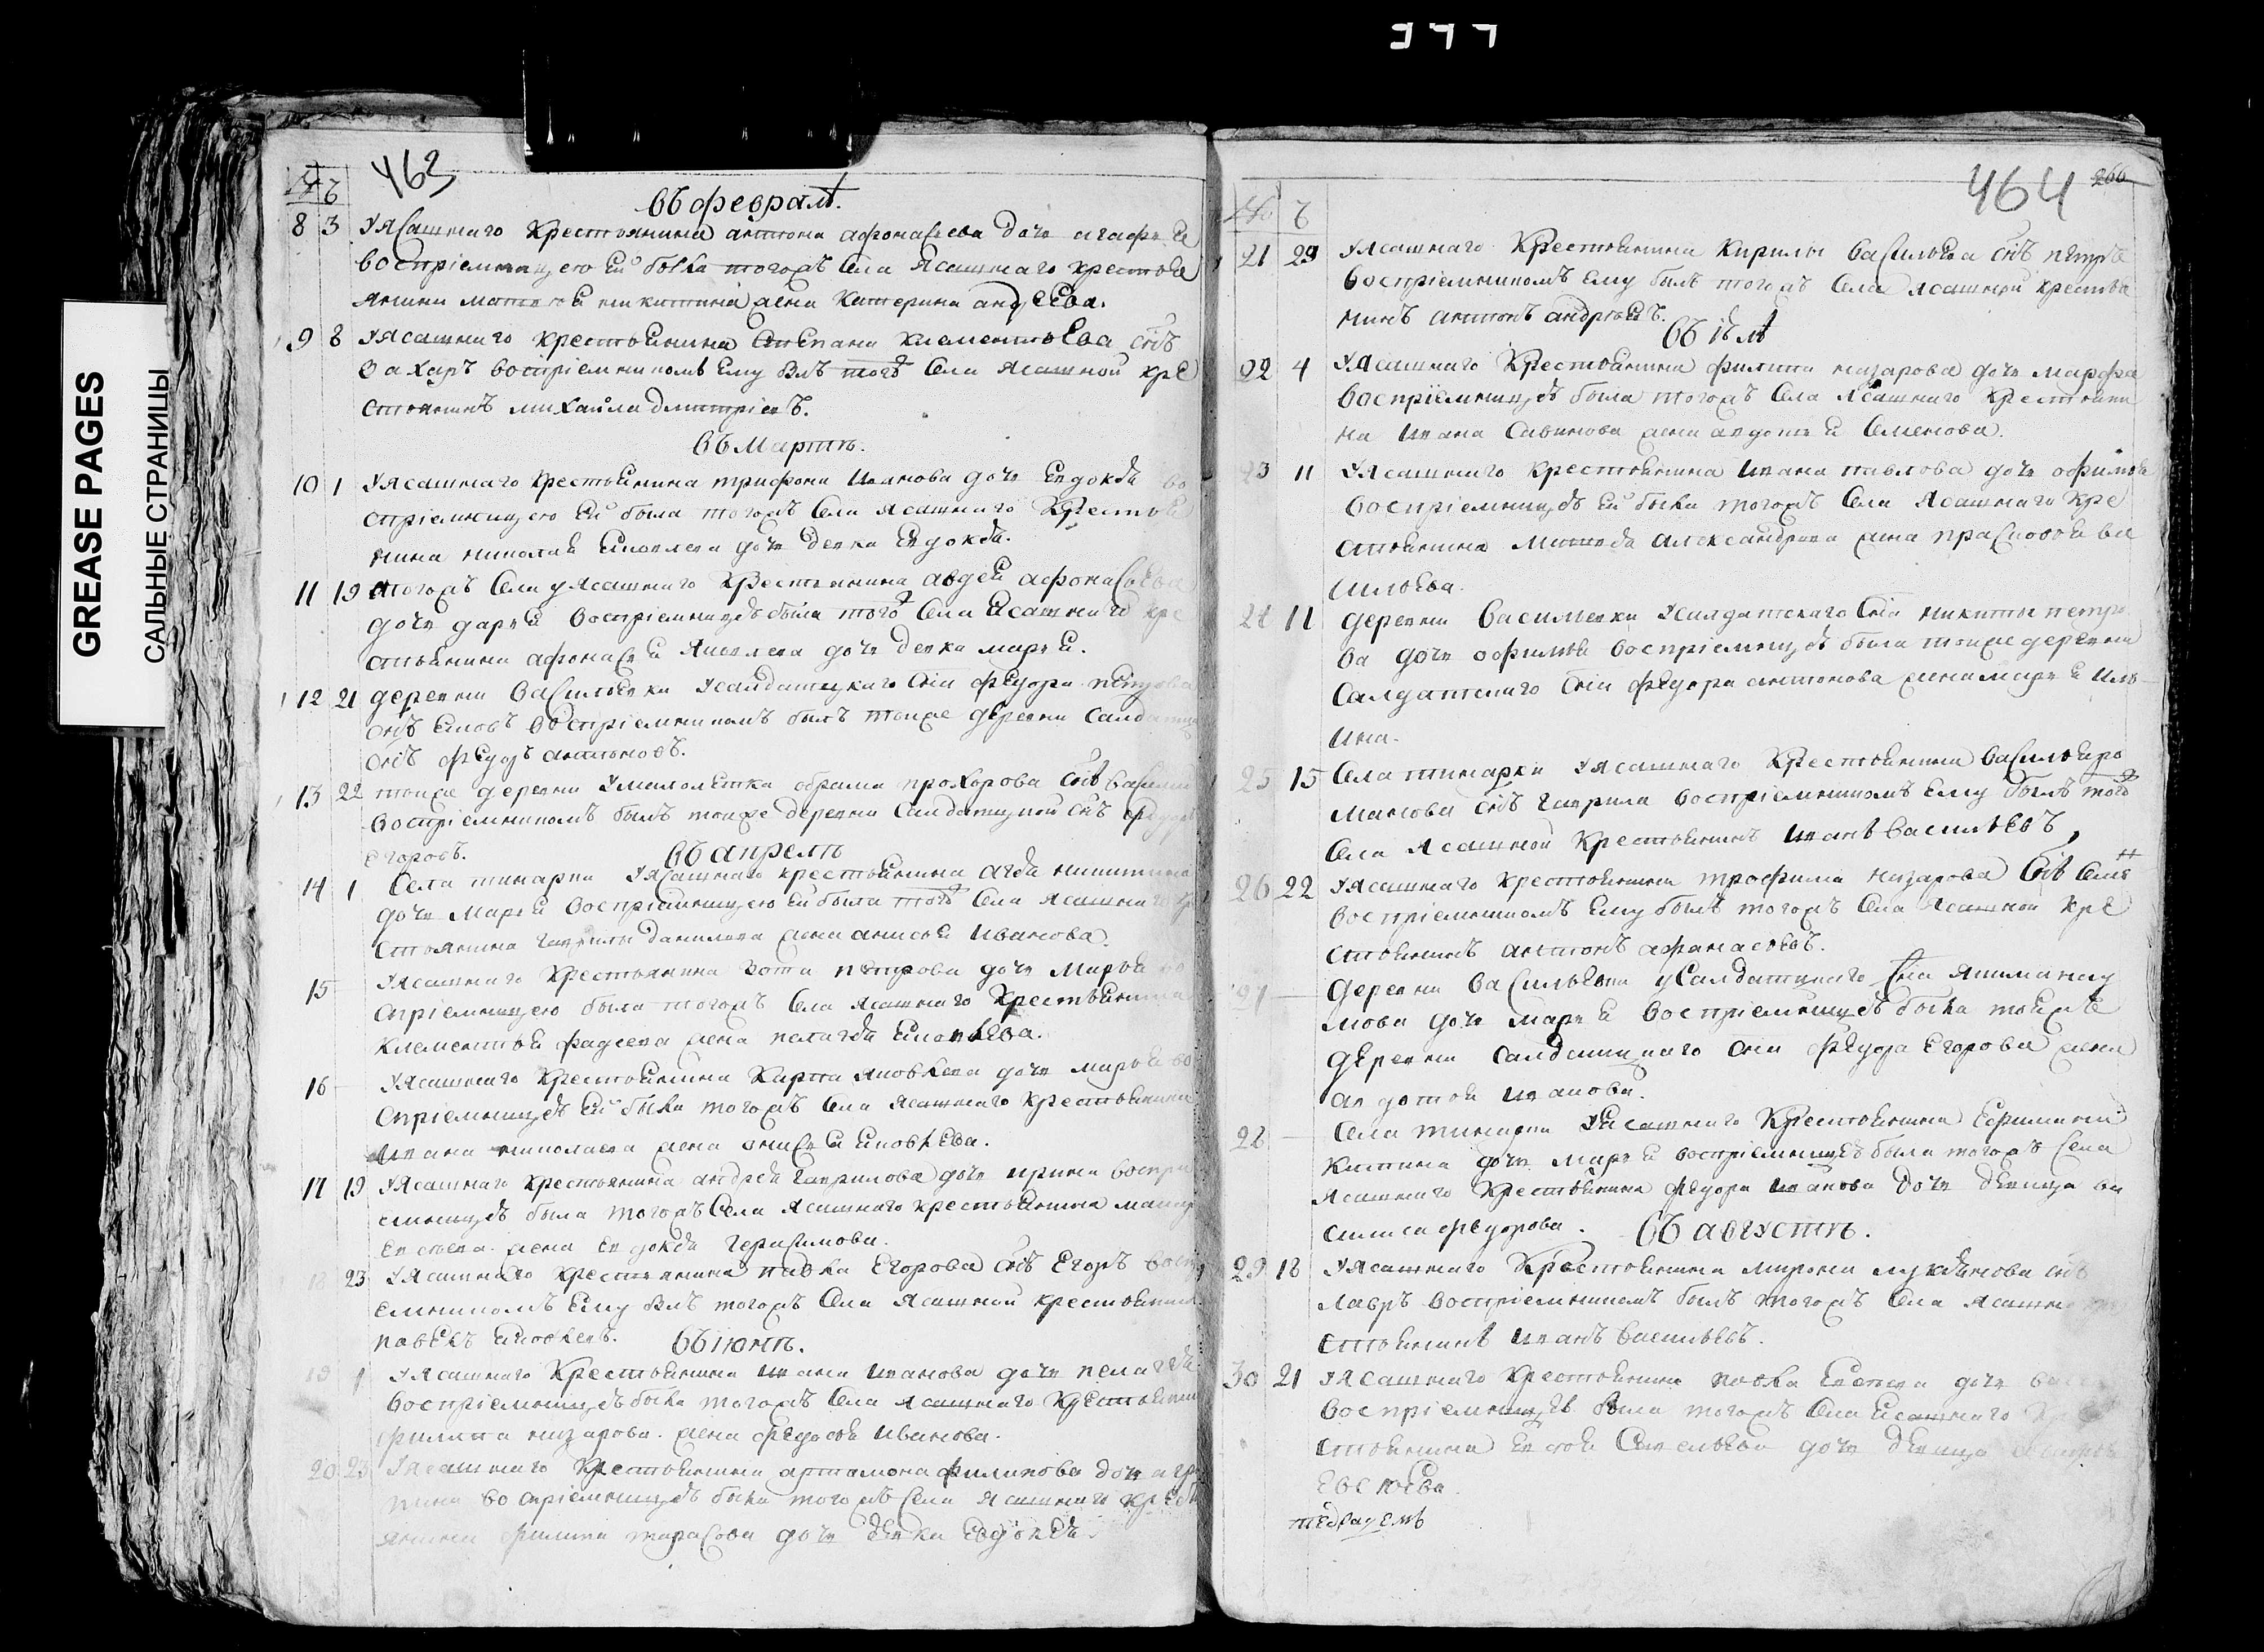 GREASE PAGES
САЛЬНЫЕ СТРАНИЦЫ
463
въ февралѣ.
8 3 У Ясашнаго крестьянина антона афонасьева дочь агафья
воспріемницею ей была тогожъ села Ясашнаго крестья
янина никитина жена катерина андреева.
9 8 У Ясашнаго крестьянина степана клементьева снъ
захаръ воспріемникомъ ему былъ тогожъ села Ясашной кре
стьянинъ михайла дмитріевъ.
въ Мартѣ.
10 1 У Ясашнаго крестьянина трифона иванова дочь евдокѣя во
спріемницею ей была тогожъ села Ясашнаго крестья
нина николая яковлева дочь девка евдокѣя.
11 19 тогожъ села у Ясашнаго крестьянина авдея афонасьева
дочь дарья воспріемницеѣ была тогожъ села Ясашнаго кре
стьянина афонасья яковлева дочь девка марья.
12 21 деревни васильевки у салдатцкаго сна федора петрова
снъ воспріемникомъ былъ тоиже деревни салдатц
снъ федоръ антоновъ.
13 22 тоиже деревни у малолетка абрама прохорова снъ васили
воспріемникомъ былъ тоиже деревни салдатцкой снъ федоръ
егоровъ. въ апрелѣ
14 1 Села тинарки У Ясашнаго крестьянина никитина
дочь Марья воспріемницею ей была тогожъ села Ясашнаго кр
стьянина гаврилы данилова жена анисья иванова.
15 У Ясашнаго крестьянина зота петрова дочь Марья во
спріемницею была тогожъ села Ясашнаго крестьянина
клементья фадеева жена пелагѣя яковлева.
16 У Ясашнаго крестьянина карпа яковлева дочь марья во
спріемницеѣ ей была тогожъ села Ясашнаго крестьянина
ивана николаева жена анисья яковлева.
17 19 У Ясашнаго крестьянина андрея гаврилова дочь ирина воспри
емницеѣ была тогожъ села Ясашнаго крестьянина
евсеева жена евдокѣя герасимова.
23 У Ясашнаго крестьянина павла егорова снъ егоръ воспр
емникомъ ему былъ тогожъ села Ясашной крестьянин
павелъ яковлевъ. въ іюнѣ.
19 1 У Ясашнаго крестьянина ивана иванова дочь пелагѣя
воспріемницеѣ была тогожъ села Ясашнаго крестьянина
филипа назарова жена федосья иванова.
20 23 У Ясашнаго крестьянина артамона филипова дочь агра
пина воспріемницеѣ была тогожъ села Ясашнаго крестья
янина филипа тарасова дочь девка евдокѣя
464 266
21 29 У Ясашнаго крестьянина кирилы васильева снъ петръ
воспріемникомъ ему былъ тогожъ села Ясашной крестья
нинъ антонъ андреевъ.
въ іюлѣ
22 4 У Ясашнаго крестьянина филипа назарова дочь марфа
воспріемницеѣ была тогожъ села Ясашнаго крестьяни
на ивана савинова жена авдотья семенова.
23 11 У Ясашнаго крестьянина ивана павлова дочь офимья
воспріемницеѣ ей была тогожъ села Ясашнаго кре
стьянина матвѣя александрова жена прасковья ва
сильева.
24 11 деревни васильевки У салдатскаго сна никиты петро
ва дочь офимья воспріемницеѣ была тоиже деревни
салдатскаго сна федора антонова жена марья иль
ина.
25 15 Села тинарки У Ясашнаго крестьянина василья ро
манова снъ гаврила воспріемникомъ ему былъ тогожъ
села Ясашной крестьянинъ иванъ васильевъ,
26 22 У Ясашнаго крестьянина трофима назарова снъ
воспріемникомъ ему былъ тогожъ села Ясашной кре
стьянинъ антонъ афанасьевъ.
27 — деревни васильевки у салдатцкаго сна якима нау
мова дочь марья воспріемницеѣ была тоижъ
деревни салдатцкаго сна федора егорова жена
авдотья иванова.
28 — Села тинарки У Ясашнаго крестьянина ефима ни
китина дочь марья воспріемницеѣ была тогожъ села
Ясашнаго крестьянина федора иванова дочь девица ва
силиса федорова. въ августѣ.
29 18 У Ясашнаго крестьянина мирона лукьянова снъ
лавръ воспріемникомъ былъ тогожъ села Ясашн
стьянинъ иванъ васильевъ.
30 21 У Ясашнаго крестьянина павла евсеева дочь
воспріемницеѣ была тогожъ села Ясашнаго кре
стьянина савельева дочь девица